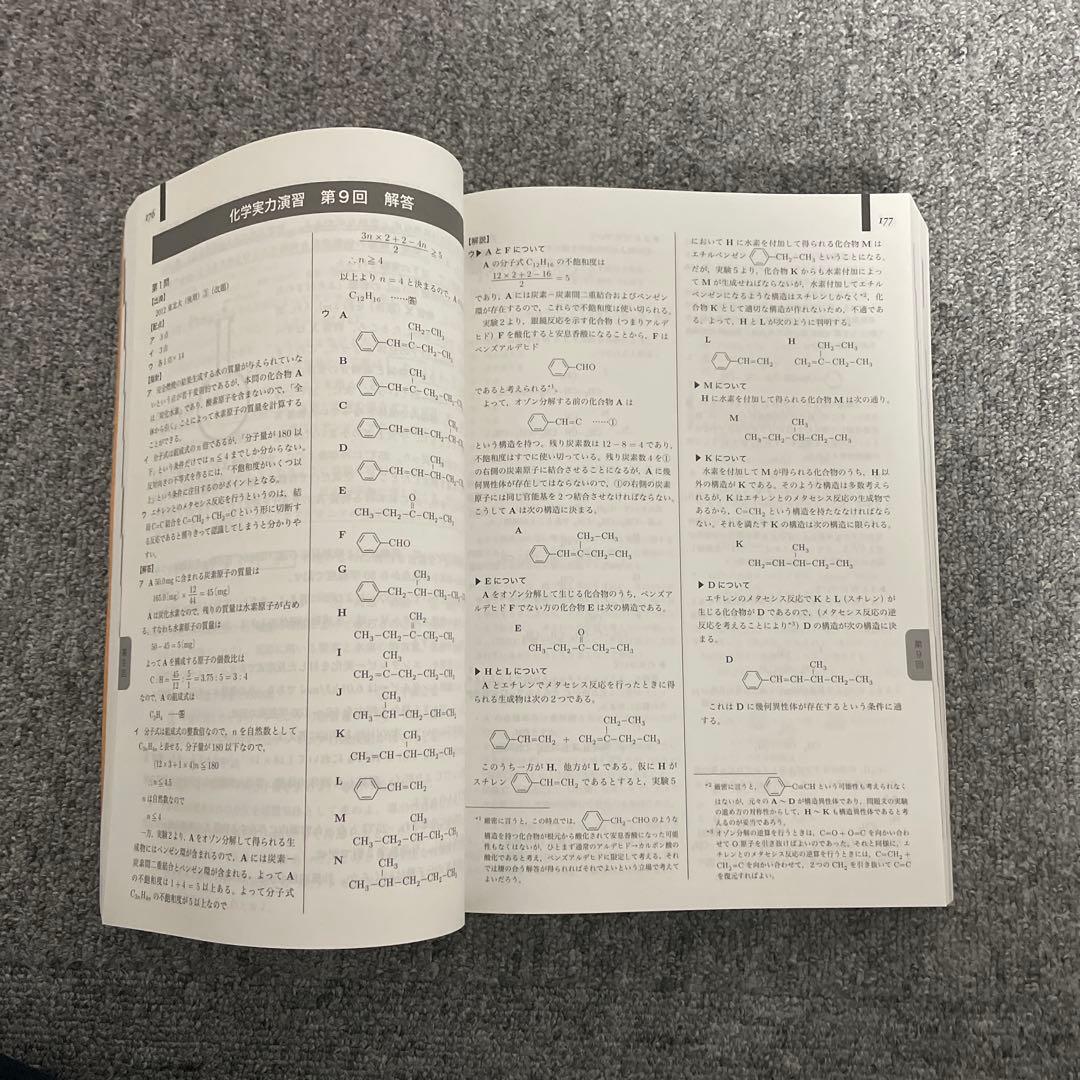 176
化学実力演習 第9回 解答
第1問
【出典】
2012 東北大(後期) ③ (改題)
【配点】
ア 3点
イ 3点
ウ 各1点×14
【指針】
ア 完全燃焼の結果生成する水の質量が与えられていな
いという点が若干変則的であるが、本問の化合物 A
は「炭化水素」であり、酸素原子を含まないので、「全
体から引く」ことによって水素原子の質量を計算する
ことができる。
イ 分子式は組成式のn倍であるが、「分子量が180以
下」という条件だけでは n≦4 までしか分からない。
反対向きの不等式を作るには、「不飽和度がいくつ以
上」という条件に注目するのがポイントとなる。
ウ エチレンとのメタセシス反応を行うというのは、結
局 C=C 結合を C=CH₂ + CH₂=C という形に切断す
る反応であると割りきって認識してしまうと分かりや
すい。
【解答】
ア A 50.0 mg に含まれる炭素原子の質量は
165.0 [mg] × 12/44 = 45 (mg)
A は炭化水素なので、残りの質量は水素原子が占め
る。すなわち水素原子の質量は
50−45=5 [mg]
よって A を構成する原子の個数比は
C : H = 45/12 : 5/1 = 3.75 : 5 = 3 : 4
なので、A の組成式は
C₃H₄ ……答
イ 分子式は組成式の整数倍なので、n を自然数として
C₃ₙH₄ₙ と表せる。分子量が180以下なので、
(12×3+1×4)n≦180
∴n≦4.5
n は自然数なので
n≦4
一方、実験2より、A をオゾン分解して得られる生
成物にはベンゼン環が含まれるので、A には炭素−
炭素間二重結合とベンゼン環が含まれる。よって A
の不飽和度は 1+4=5 以上ある。よって分子式
C₃ₙH₄ₙ の不飽和度が5以上なので
(3n×2+2−4n)/2 ≧5
∴n≧4
以上より n=4 と決まるので、A
C₁₂H₁₆ ……答
ウ A
CH₂−CH₃
−CH=C−CH₂−CH₃
B
CH₃
−CH=C−CH₂−CH₂
C
CH₃
−CH=C−CH₂−CH₂
D
CH₃
−CH=CH−CH−CH₂
E
O
CH₃−CH₂−C−CH₂−CH₃
F
−CHO
G
CH₃
−CH₂−CH−CH₂
H
CH₂
CH₃−CH₂−C−CH₂−CH₃
I
CH₃
CH₂=C−CH₂−CH₂−CH₃
J
CH₃
CH₃−CH−CH₂−CH=CH₂
K
CH₃
CH₂=CH−CH−CH₂−CH₃
L
−CH=CH₂
M
CH₃
CH₃−CH₂−CH−CH₂−CH₃
N
CH₃
CH₃−CH−CH₂−CH₂−CH₃
第9回
177
【解説】
ウ▶A と F について
A の分子式 C₁₂H₁₆ の不飽和度は
(12×2+2−16)/2 =5
であり、A には炭素−炭素間二重結合およびベンゼン
環が存在するので、これらで不飽和度は使い切られる。
実験2より、銀鏡反応を示す化合物(つまりアルデ
ヒド)F を酸化すると安息香酸になることから、F は
ベンズアルデヒド
−CHO
であると考えられる*¹。
よって、オゾン分解する前の化合物 A は
−CH=C ……①
という構造を持つ。残り炭素数は 12−8=4 であり、
不飽和度はすでに使い切っている。残り炭素数4を①
の右側の炭素原子に結合させることになるが、A に幾
何異性体が存在してはならないので、①の右側の炭素
原子には同じ官能基を2つ結合させなければならない。
こうして A は次の構造に決まる。
A
CH₂−CH₃
−CH=C−CH₂−CH₃
▶E について
A をオゾン分解して生じる化合物のうち、ベンズ
アルデヒド F でない方の化合物 E は次の構造である。
E
O
CH₃−CH₂−C−CH₂−CH₃
▶H と L について
A とエチレンでメタセシス反応を行ったときに得
られる生成物は次の2つである。
CH₂−CH₃
−CH=CH₂ + CH₂=C−CH₂−CH₃
このうち一方が H、他方が L である。仮に H が
スチレン −CH=CH₂ であるとすると、実験5
*¹ 厳密に言うと、この時点では、 −CH₂−CHO のような
構造を持つ化合物が根元から酸化されて安息香酸になった可能
性もなくはないが、ひとまず通常のアルデヒド→カルボン酸の
酸化であると考え、ベンズアルデヒドに限定して考える。それ
で辻褄の合う解答が得られればそれでよいという立場で考えて
よいだろう。
において H に水素を付加して得られる化合物 M は
エチルベンゼン −CH₂−CH₃ ということになる。
だが、実験5より、化合物 K からも水素付加によっ
て M が生成せねばならないが、水素付加してエチル
ベンゼンになるような構造はスチレンしかなく*²、化
合物 K として適切な構造が作れないため、不適であ
る。よって、H と L が次のように判明する。
L H
CH₂−CH₃
−CH=CH₂ CH₂=C−CH₂−CH₃
▶M について
H に水素を付加して得られる化合物 M は次の通り。
M
CH₃
CH₃−CH₂−CH−CH₂−CH₃
▶K について
水素を付加して M が得られる化合物のうち、H 以
外の構造が K である。そのような構造は多数考えら
れるが、K はエチレンとのメタセシス反応の生成物で
あるから、C=CH₂ という構造を持たなければなら
ない。それを満たす K の構造は次の構造に限られる。
K
CH₃
CH₂=CH−CH−CH₂−CH₃
▶D について
エチレンのメタセシス反応で K と L (スチレン)が
生じる化合物が D であるので、(メタセシス反応の逆
反応を考えることにより*³) D の構造が次の構造に決
まる。
D
CH₃
−CH=CH−CH−CH₂−CH₃
これは D に幾何異性体が存在するという条件に適
する。
*² 厳密に言うと、 −C≡CH という可能性も考えられなく
はないが、元々の A〜D が構造異性体であり、問題文の実験
の進め方の対称性からして、H〜K も構造異性体であると考
えるのが妥当であろう。
*³ オゾン分解の逆算を行うときは、C=O + O=C を向かい合わ
せて O 原子を引き抜けばよいのであった。それと同様に、エ
チレンとのメタセシス反応の逆算を行うときには、C=CH₂ +
CH₂=C を向かい合わせて、2つの CH₂ を引き抜いて C=C
を復元すればよい。
第9回